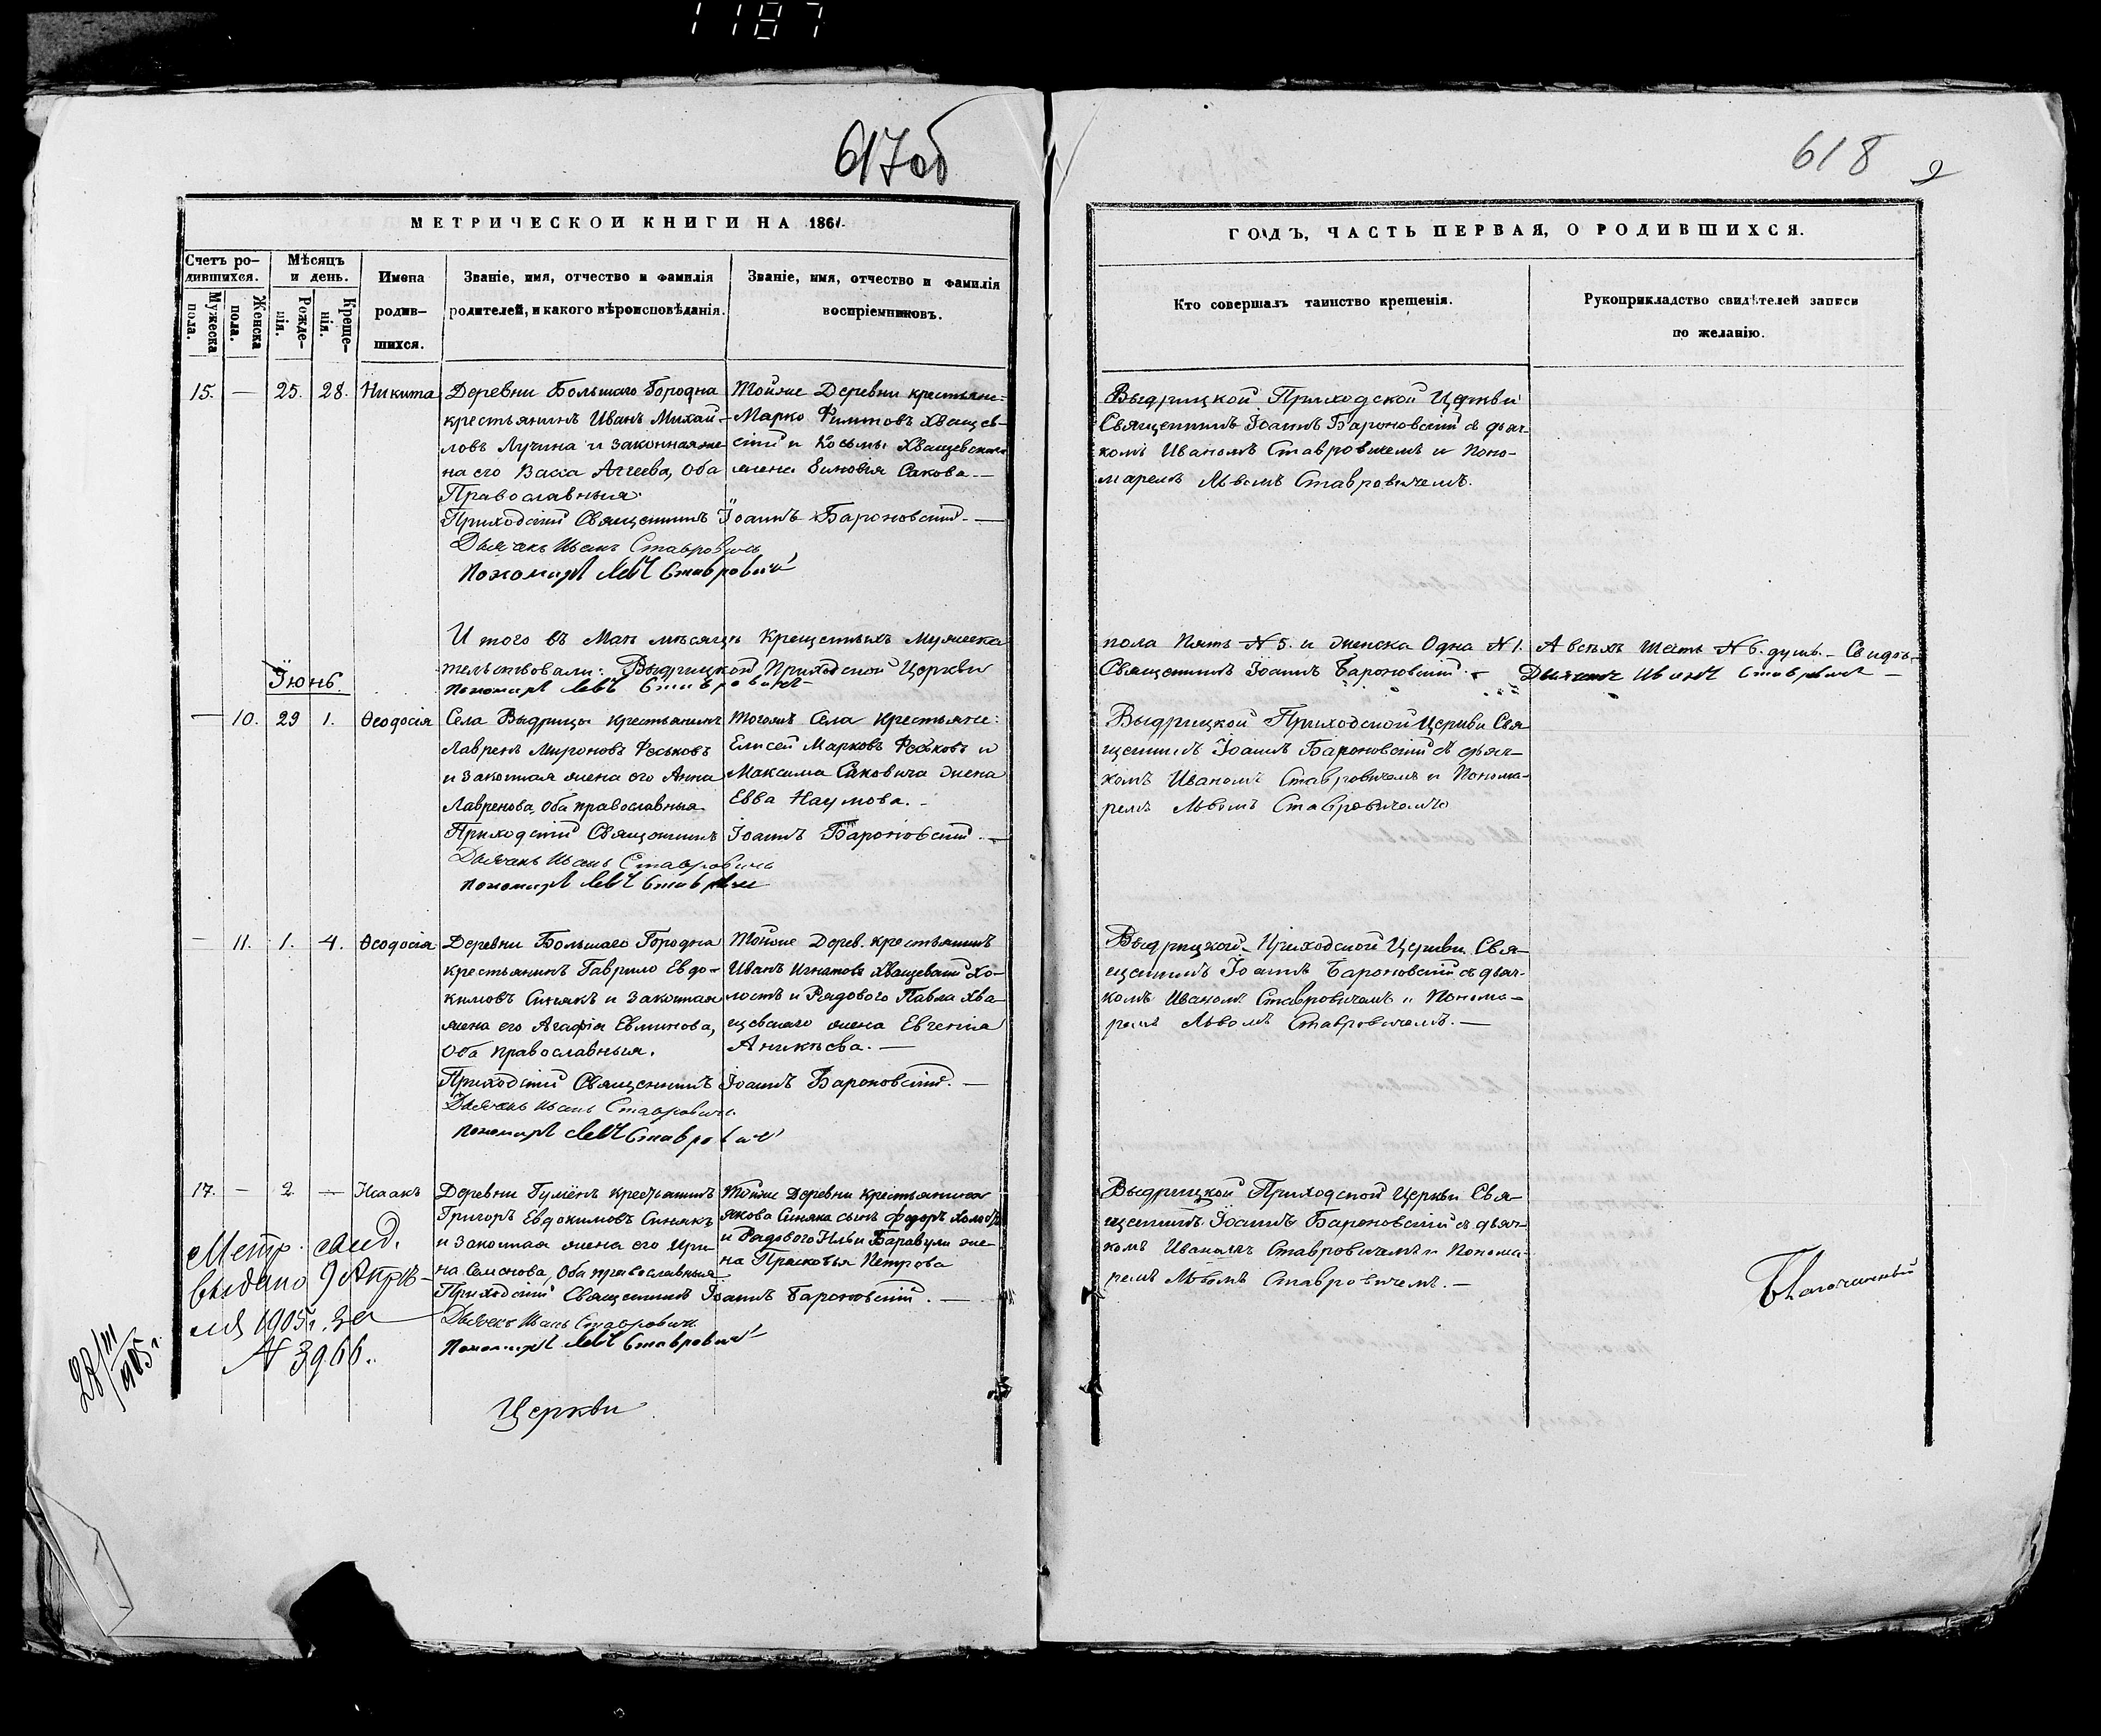 1187
617об
618
МЕТРИЧЕСКОЙ КНИГИ НА 1861.
ГОДЪ, ЧАСТЬ ПЕРВАЯ, О РОДИВШИХСЯ.
Счетъ ро-
дившихся.
Мужеска
пола.
Женска
пола.
Мѣсяцъ
и день.
Рожде-
нія.
Креще-
нія.
Имена
родив-
шихся.
Званіе, имя, отчество и фамилія
родителей, и какого вѣроисповѣданія.
Званіе, имя, отчество и фамилія
воспріемниковъ.
Кто совершалъ таинство крещенія.
Рукоприкладство свидѣтелей записи
по желанію.
15. — 25. 28. Никита
Деревни Большаго Городна
крестьянинъ Иванъ Михай-
ловъ Лучина и законная же-
на его Васса Агеева, Оба
Православныя.
Тойже Деревни крестьяне:
Марко Филиповъ Хващев-
скій и Косьмы Хващевскаго
жена Зиновія Сакова. —
Приходскій Священникъ Іоаннъ Бароновскій. —
Дьячекъ Иванъ Ставровичъ
Пономарь Левъ Ставровичъ
Выдрицкой Приходской Церкви
Священникъ Іоаннъ Бароновскій съ дьяч-
комъ Иваномъ Ставровичемъ и Поно-
маремъ Львомъ Ставровичемъ.
И того въ Маѣ мѣсяцѣ Крещенныхъ Мужеска
пола Пять N 5. и женска Одна N 1. А всѣхъ Шесть N 6. душъ. — Свидѣ-
тельствовали: Выдрицкой Приходской Церкви
Священникъ Іоаннъ Бароновскій. — Дьячекъ Иванъ Ставровичъ —
Пономарь Левъ Ставровичъ
Іюнь.
— 10. 29 1. Ѳеодосія
Села Выдрицы крестьянинъ
Лавренъ Мироновъ Феськовъ
и законная жена его Анна
Лавренова, Оба православныя
Тогожъ Села Крестьяне:
Елисей Марковъ Феськовъ и
Максима Саковича жена
Евва Наумова. —
Приходскій Священникъ Іоаннъ Бароновскій. —
Дьячекъ Иванъ Ставровичъ
Пономарь Левъ Ставровичъ
Выдрицкой Приходской Церкви Свя-
щенникъ Іоаннъ Бароновскій съ дьяч-
комъ Иваномъ Ставровичемъ и Понома-
ремъ Львомъ Ставровичемъ
— 11. 1. 4. Ѳеодосія
Деревни Большаго Городна
крестьянинъ Гаврило Евдо-
кимовъ Синякъ и Законная
жена его Агафія
Оба православныя.
Тойже Дерев. крестьянинъ
Иванъ Игнатовъ Хващевскій Хо-
лостъ и Рядового Павла Хва-
щевскаго жена Евгенія
Аникѣева. —
Приходскій Священникъ Іоаннъ Бароновскій. —
Дьячекъ Иванъ Ставровичъ
Пономарь Левъ Ставровичъ
Выдрицкой Приходской Церкви Свя-
щенникъ Іоаннъ Бароновскій съ дьяч-
комъ Иваномъ Ставровичемъ и Понома-
ремъ Львомъ Ставровичемъ. —
17. — 2. — Исаакъ
Деревни Гуменъ крестьянинъ
Григоръ Евдокимовъ Синякъ
и Законная жена его Ири-
на Семенова, Оба православныя
Тойже Деревни Крестьянина
Якова Синяка сынъ Федоръ Холостъ
и Рядового Ильи Баравули же-
на Прасковья Петрова
Приходскій Священникъ Іоаннъ Бароновскій. —
Дьячекъ Иванъ Ставровичъ
Пономарь Левъ Ставровичъ
Выдрицкой Приходской Церкви Свя-
щенникъ Іоаннъ Бароновскій съ дьяч-
комъ Иваномъ Ставровичемъ и Понома-
ремъ Львомъ Ставровичемъ. —
Метр. свид.
выдано 9 Апрѣ-
ля 1905 г. за
N 3966.
28/III 1905 г.
Церкви
Благочинный